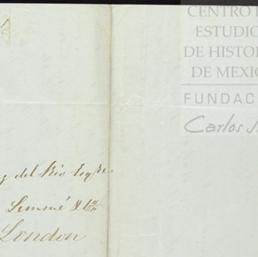 CENTRO
ESTUDIO
DE HISTOR
DE MEXIC
FUNDAC
Carlos
del Rio Esq
London